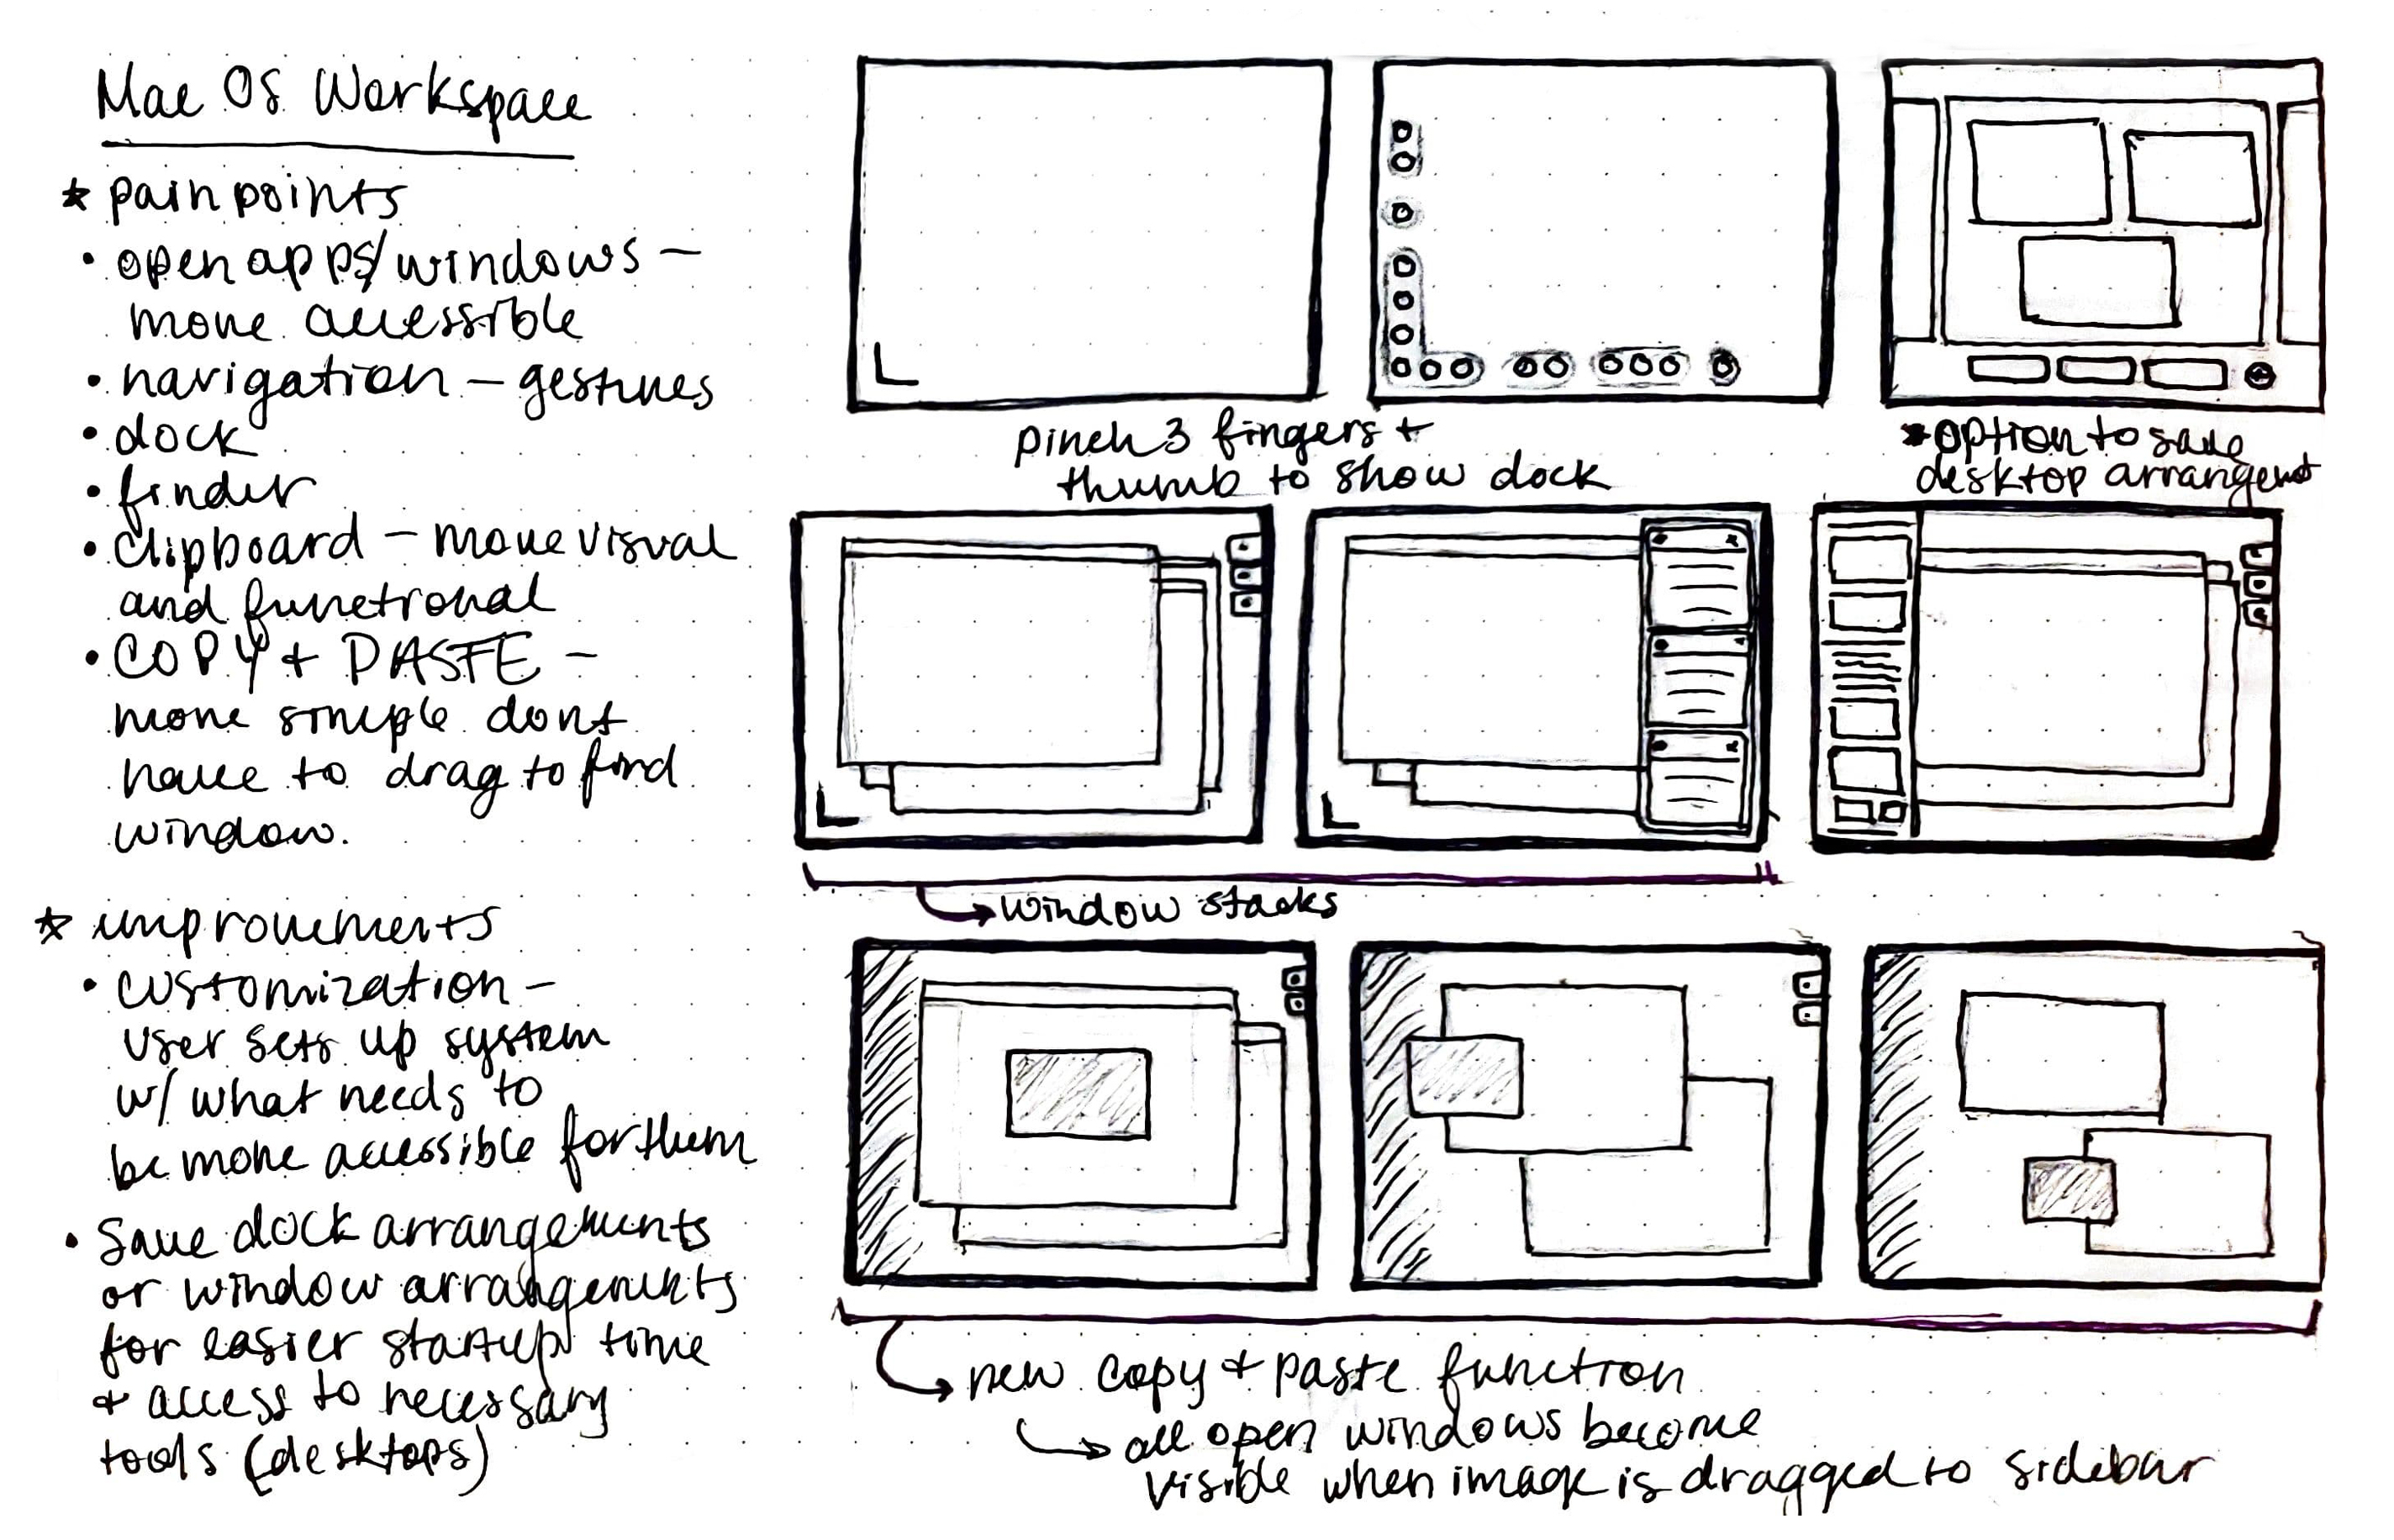 Mac OS Workspace
* painpoints
• open apps/windows –
more accessible
• navigation – gestures
• dock
• finder
• clipboard – more visual
and functional
• COPY + PASTE –
more simple dont
have to drag to find
window.
* improvements
• customization –
user sets up system
w/ what needs to
be more accessible for them
• Save dock arrangements
or window arrangements
for easier startup time
+ access to necessary
tools (desktops)
pinch 3 fingers +
thumb to show dock
*option to save
desktop arrangemt
window stacks
new copy + paste function
all open windows become
visible when image is dragged to sidebar